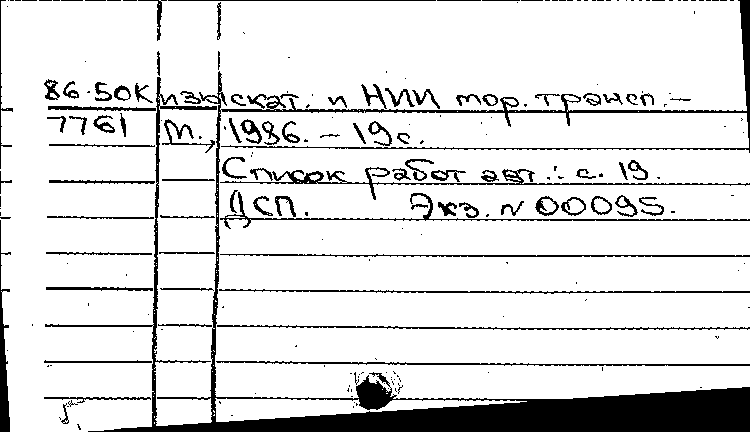 86.50К изыскат. и НИИ мор. трансп. –
7761 М., 1986. – 19 с.
Список работ авт.: с. 19.
ДСП. Экз. N 00095.